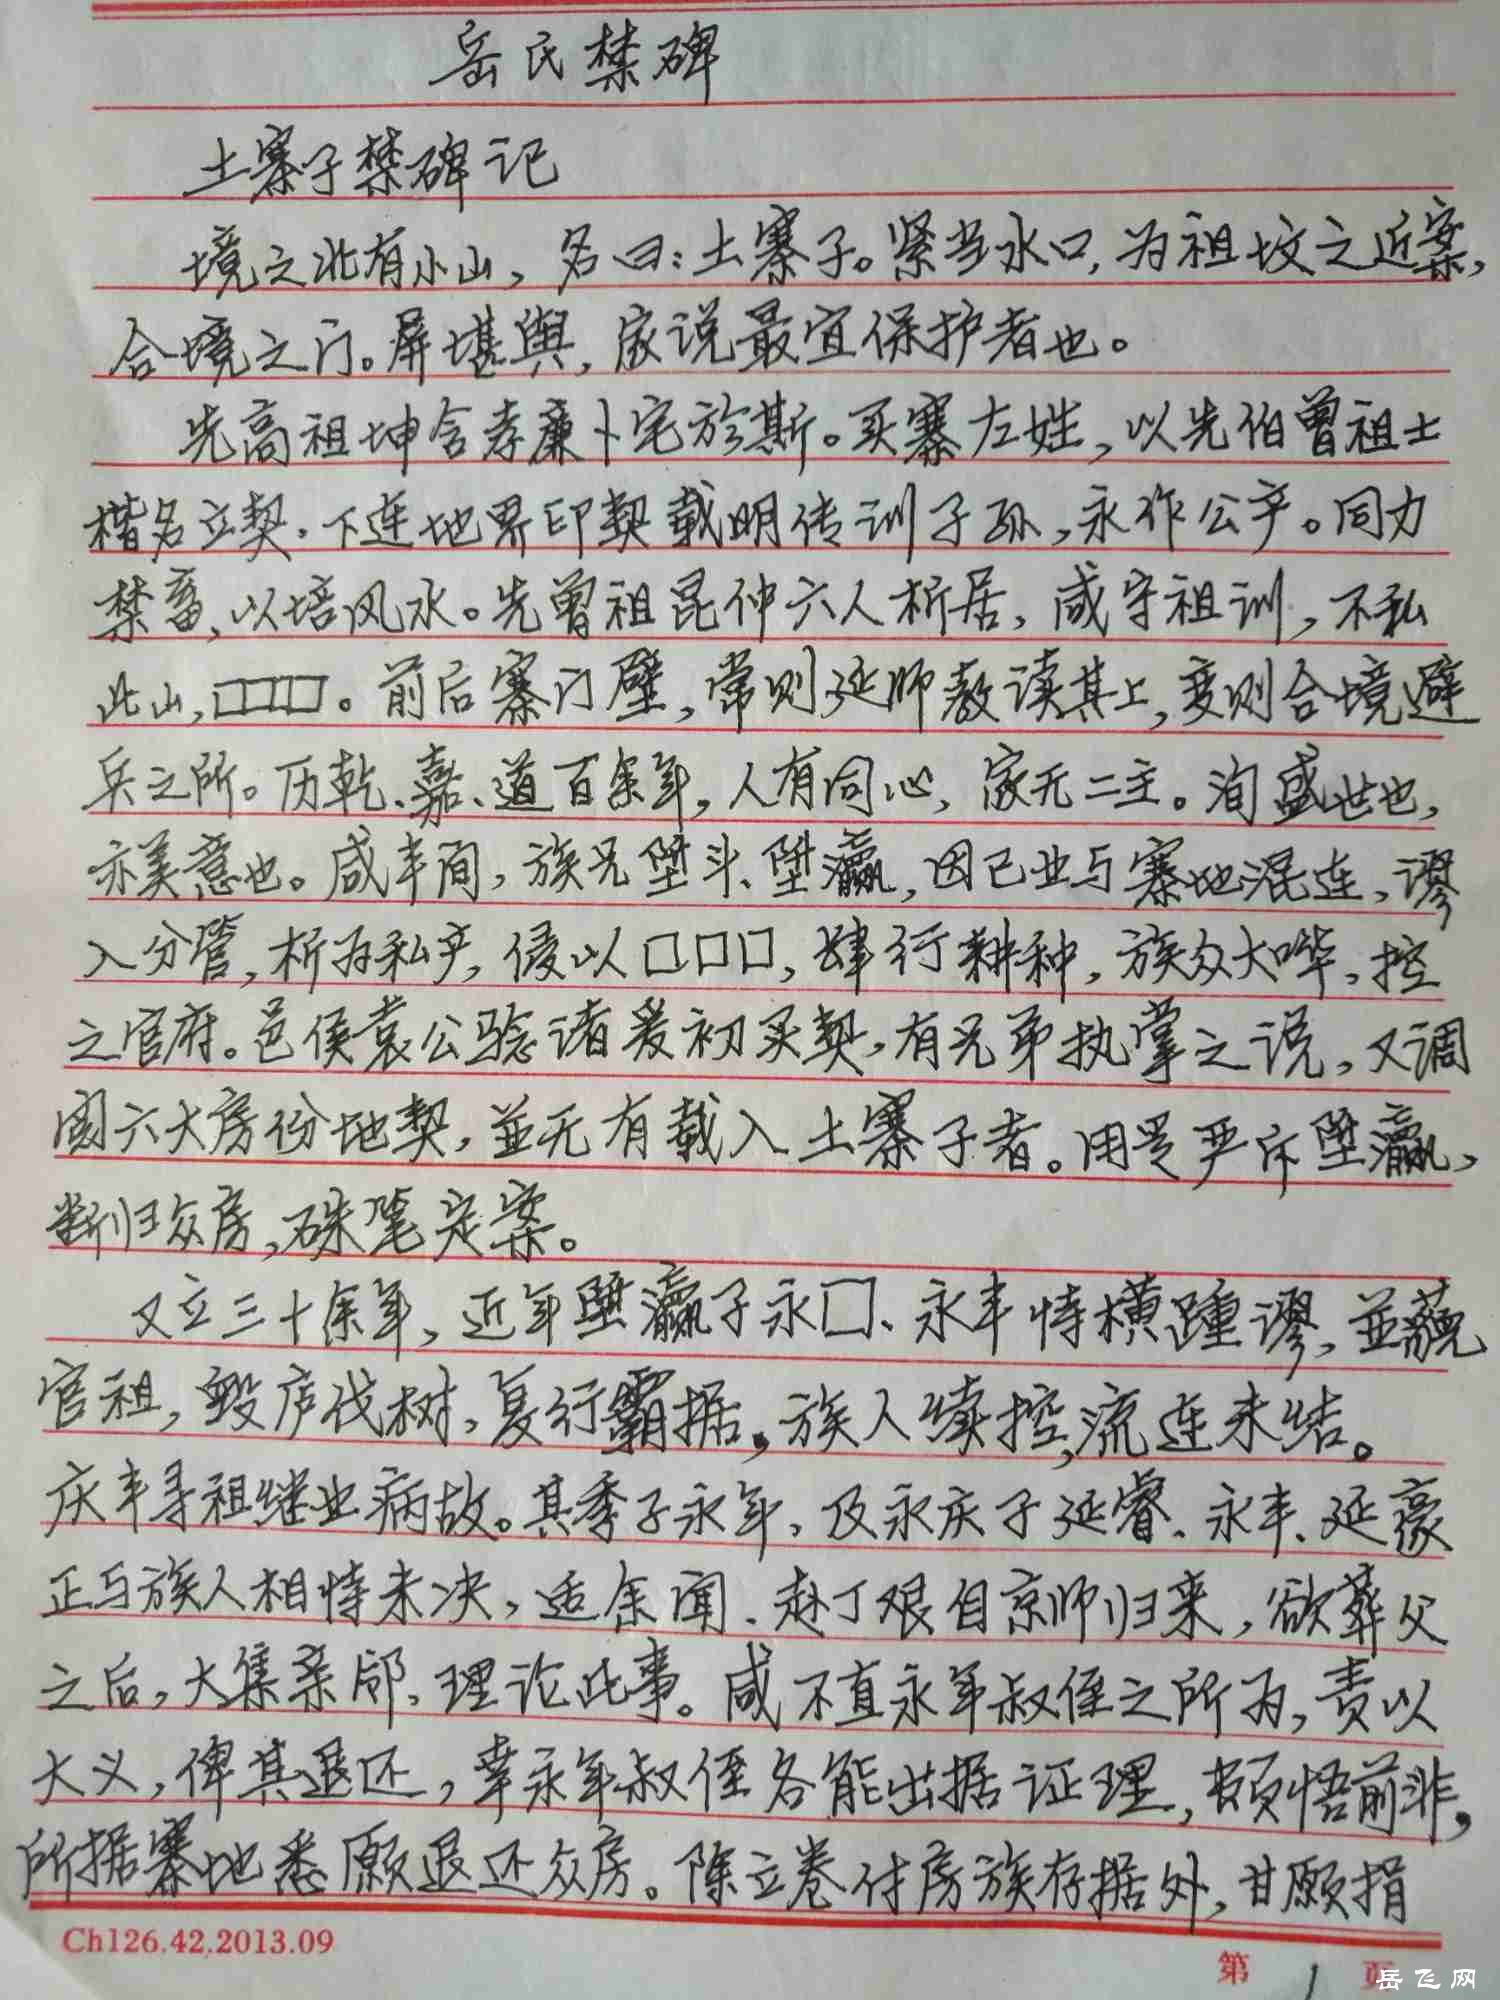 岳氏禁碑
土寨子禁碑记
境之北有小山，名曰：土寨子。紧当水口，为祖坟之近案，
合境之门。屏堪舆，家说最宜保护者也。
先高祖坤含孝廉卜宅於斯。买寨左姓，以先伯曾祖士
楷名立契，下连地界印契载明传训子孙，永作公产。同力
禁畜，以培风水。先曾祖昆仲六人析居，咸守祖训，不私
此山，□□□。前后寨门壁，常则延师教读其上，变则合境避
兵之所。历乾、嘉、道百余年，人有同心，家无二主。洵盛世也，
亦美意也。咸丰间，族兄堃斗、堃瀛，因已业与寨地混连，谬
入分管，析为私产，侵以□□□，肆行耕种，族众大哗，控
之官府。邑侯袁公验诸爰初买契，有兄弟执掌之说，又调
阅六大房份地契，並无有载入土寨子者。用是严斥堃瀛，
断归众房，硃笔定案。
又立三十余年，近年堃瀛子永□、永丰恃横踵谬，並藐
官祖，毁庐伐树，复行霸据。族人续控，流连未结。
庆丰寻祖继业病故。其季子永年，及永庆子延睿、永丰、延豪
正与族人相恃未决，适余闻、赴丁艰自京师归来，欲葬父
之后，大集亲邻，理论此事。咸不直永年叔侄之所为，责以
大义，俾其退还，幸永年叔侄各能出据证理，顿悟前非，
所据寨地悉愿退还众房。除立卷付房族存据外，甘愿捐
Ch126.42.2013.09
第1页
岳飞网